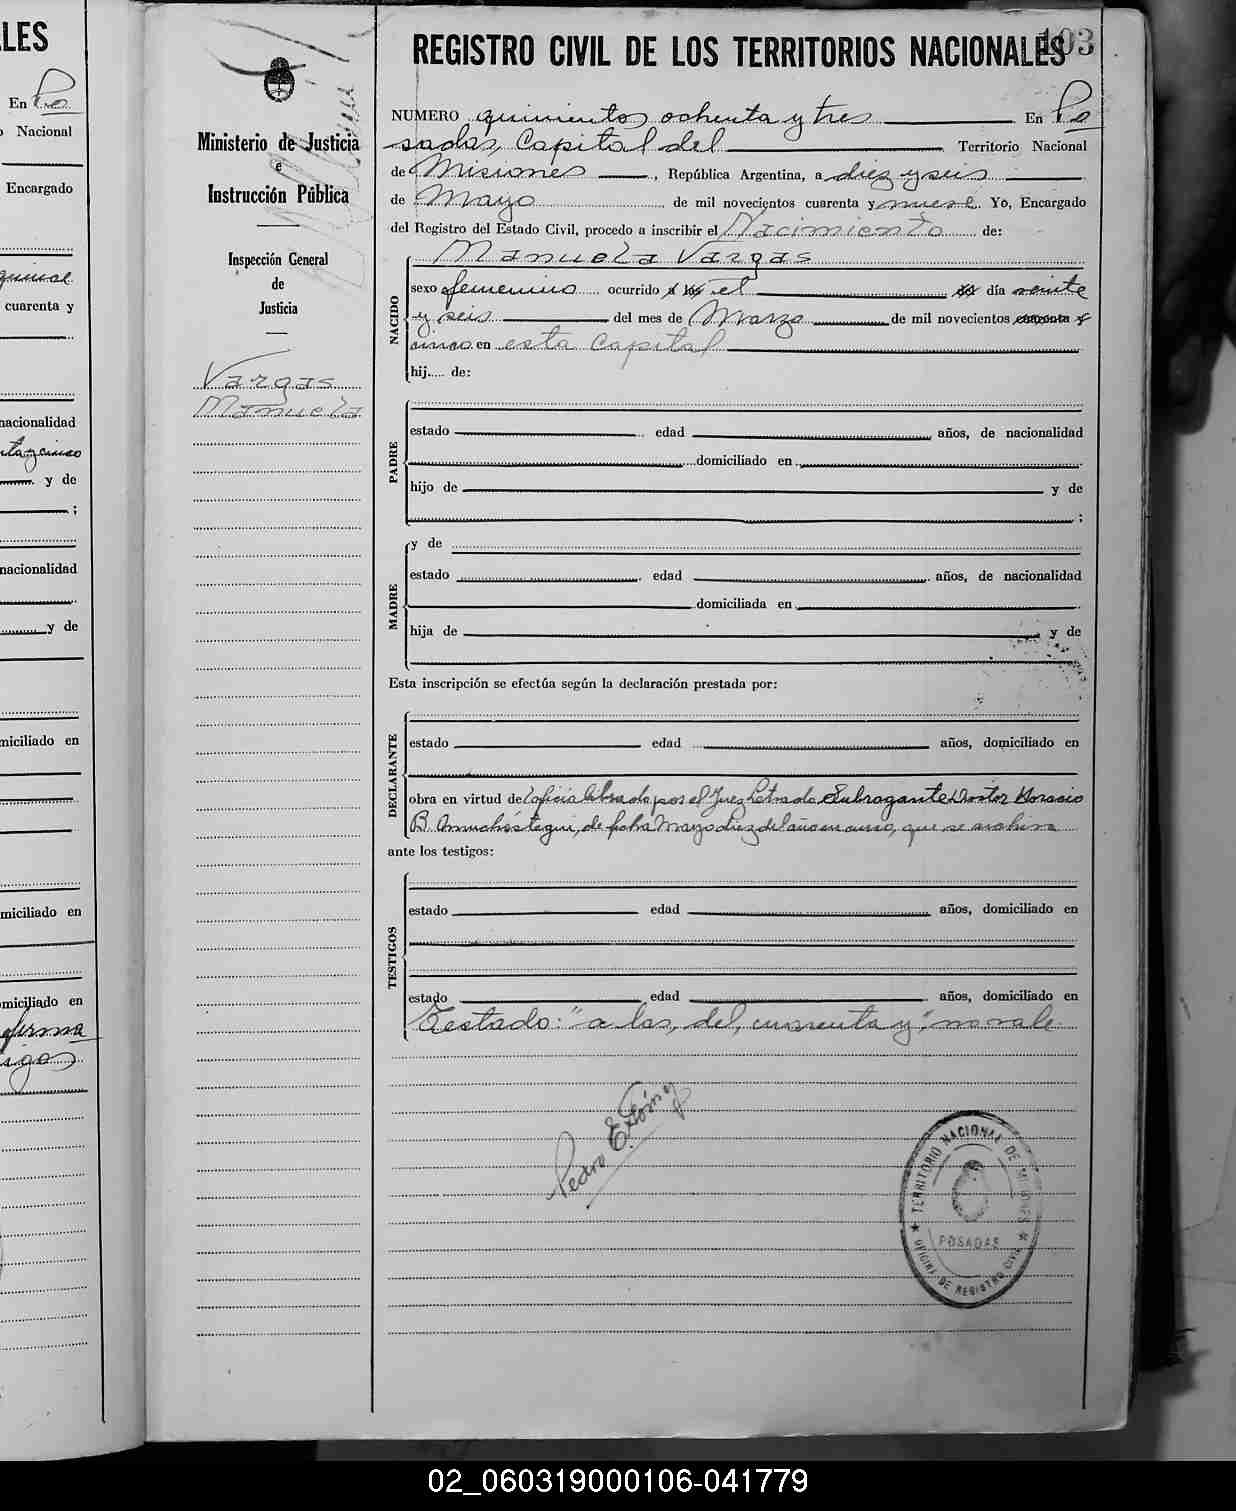 LES
En Po
Nacional
Encargado
cuarenta y
nacionalidad
y de
;
nacionalidad
y de
miciliado en
miciliado en
miciliado en
firma
Ministerio de Justicia
e
Instrucción Pública
Inspección General
de
Justicia
Vargas
Manuela
103
REGISTRO CIVIL DE LOS TERRITORIOS NACIONALES
NUMERO quinientos ochenta y tres En Po
sadas, Capital del Territorio Nacional
de Misiones, República Argentina, a diez y seis
de Mayo de mil novecientos cuarenta y nueve. Yo, Encargado
del Registro del Estado Civil, procedo a inscribir el Nacimiento de:
Manuela Vargas
NACIDO
sexo femenino ocurrido a las el del día veinte
y seis del mes de Marzo de mil novecientos cuarenta y
cinco en esta Capital
hij.... de:
PADRE
estado edad años, de nacionalidad
domiciliado en
hijo de y de
;
MADRE
y de
estado edad años, de nacionalidad
domiciliada en
hija de y de
Esta inscripción se efectúa según la declaración prestada por:
DECLARANTE
estado edad años, domiciliado en
obra en virtud de oficio librado por el Juez Letrado Subrogante Doctor Horacio
B. de fecha Mayo diez del año en curso, que se archiva
ante los testigos:
TESTIGOS
estado edad años, domiciliado en
estado edad años, domiciliado en
Testado: "a las, del, cuarenta y", no vale
Pedro E.
TERRITORIO NACIONAL DE MISIONES
POSADAS
OFICINA DE REGISTRO CIVIL
02_060319000106-041779